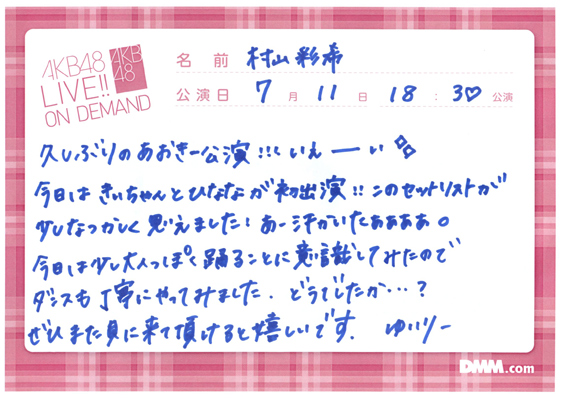 AKB48
LIVE!!
ON DEMAND
AKB
48
名前 村山彩希
公演日 7月11日 18:30公演
久しぶりのあおきー公演!!! いえーーい
今日はきぃちゃんとひななが初出演!! このセットリストが
少しなつかしく思えました! あー汗かいたぁぁぁぁ。
今日は少し大人っぽく踊ることに意識してみたので
ダンスも丁寧にやってみました. どうでしたか…?
ぜひまた見に来て頂けると嬉しいです. ゆいりー
DMM.com